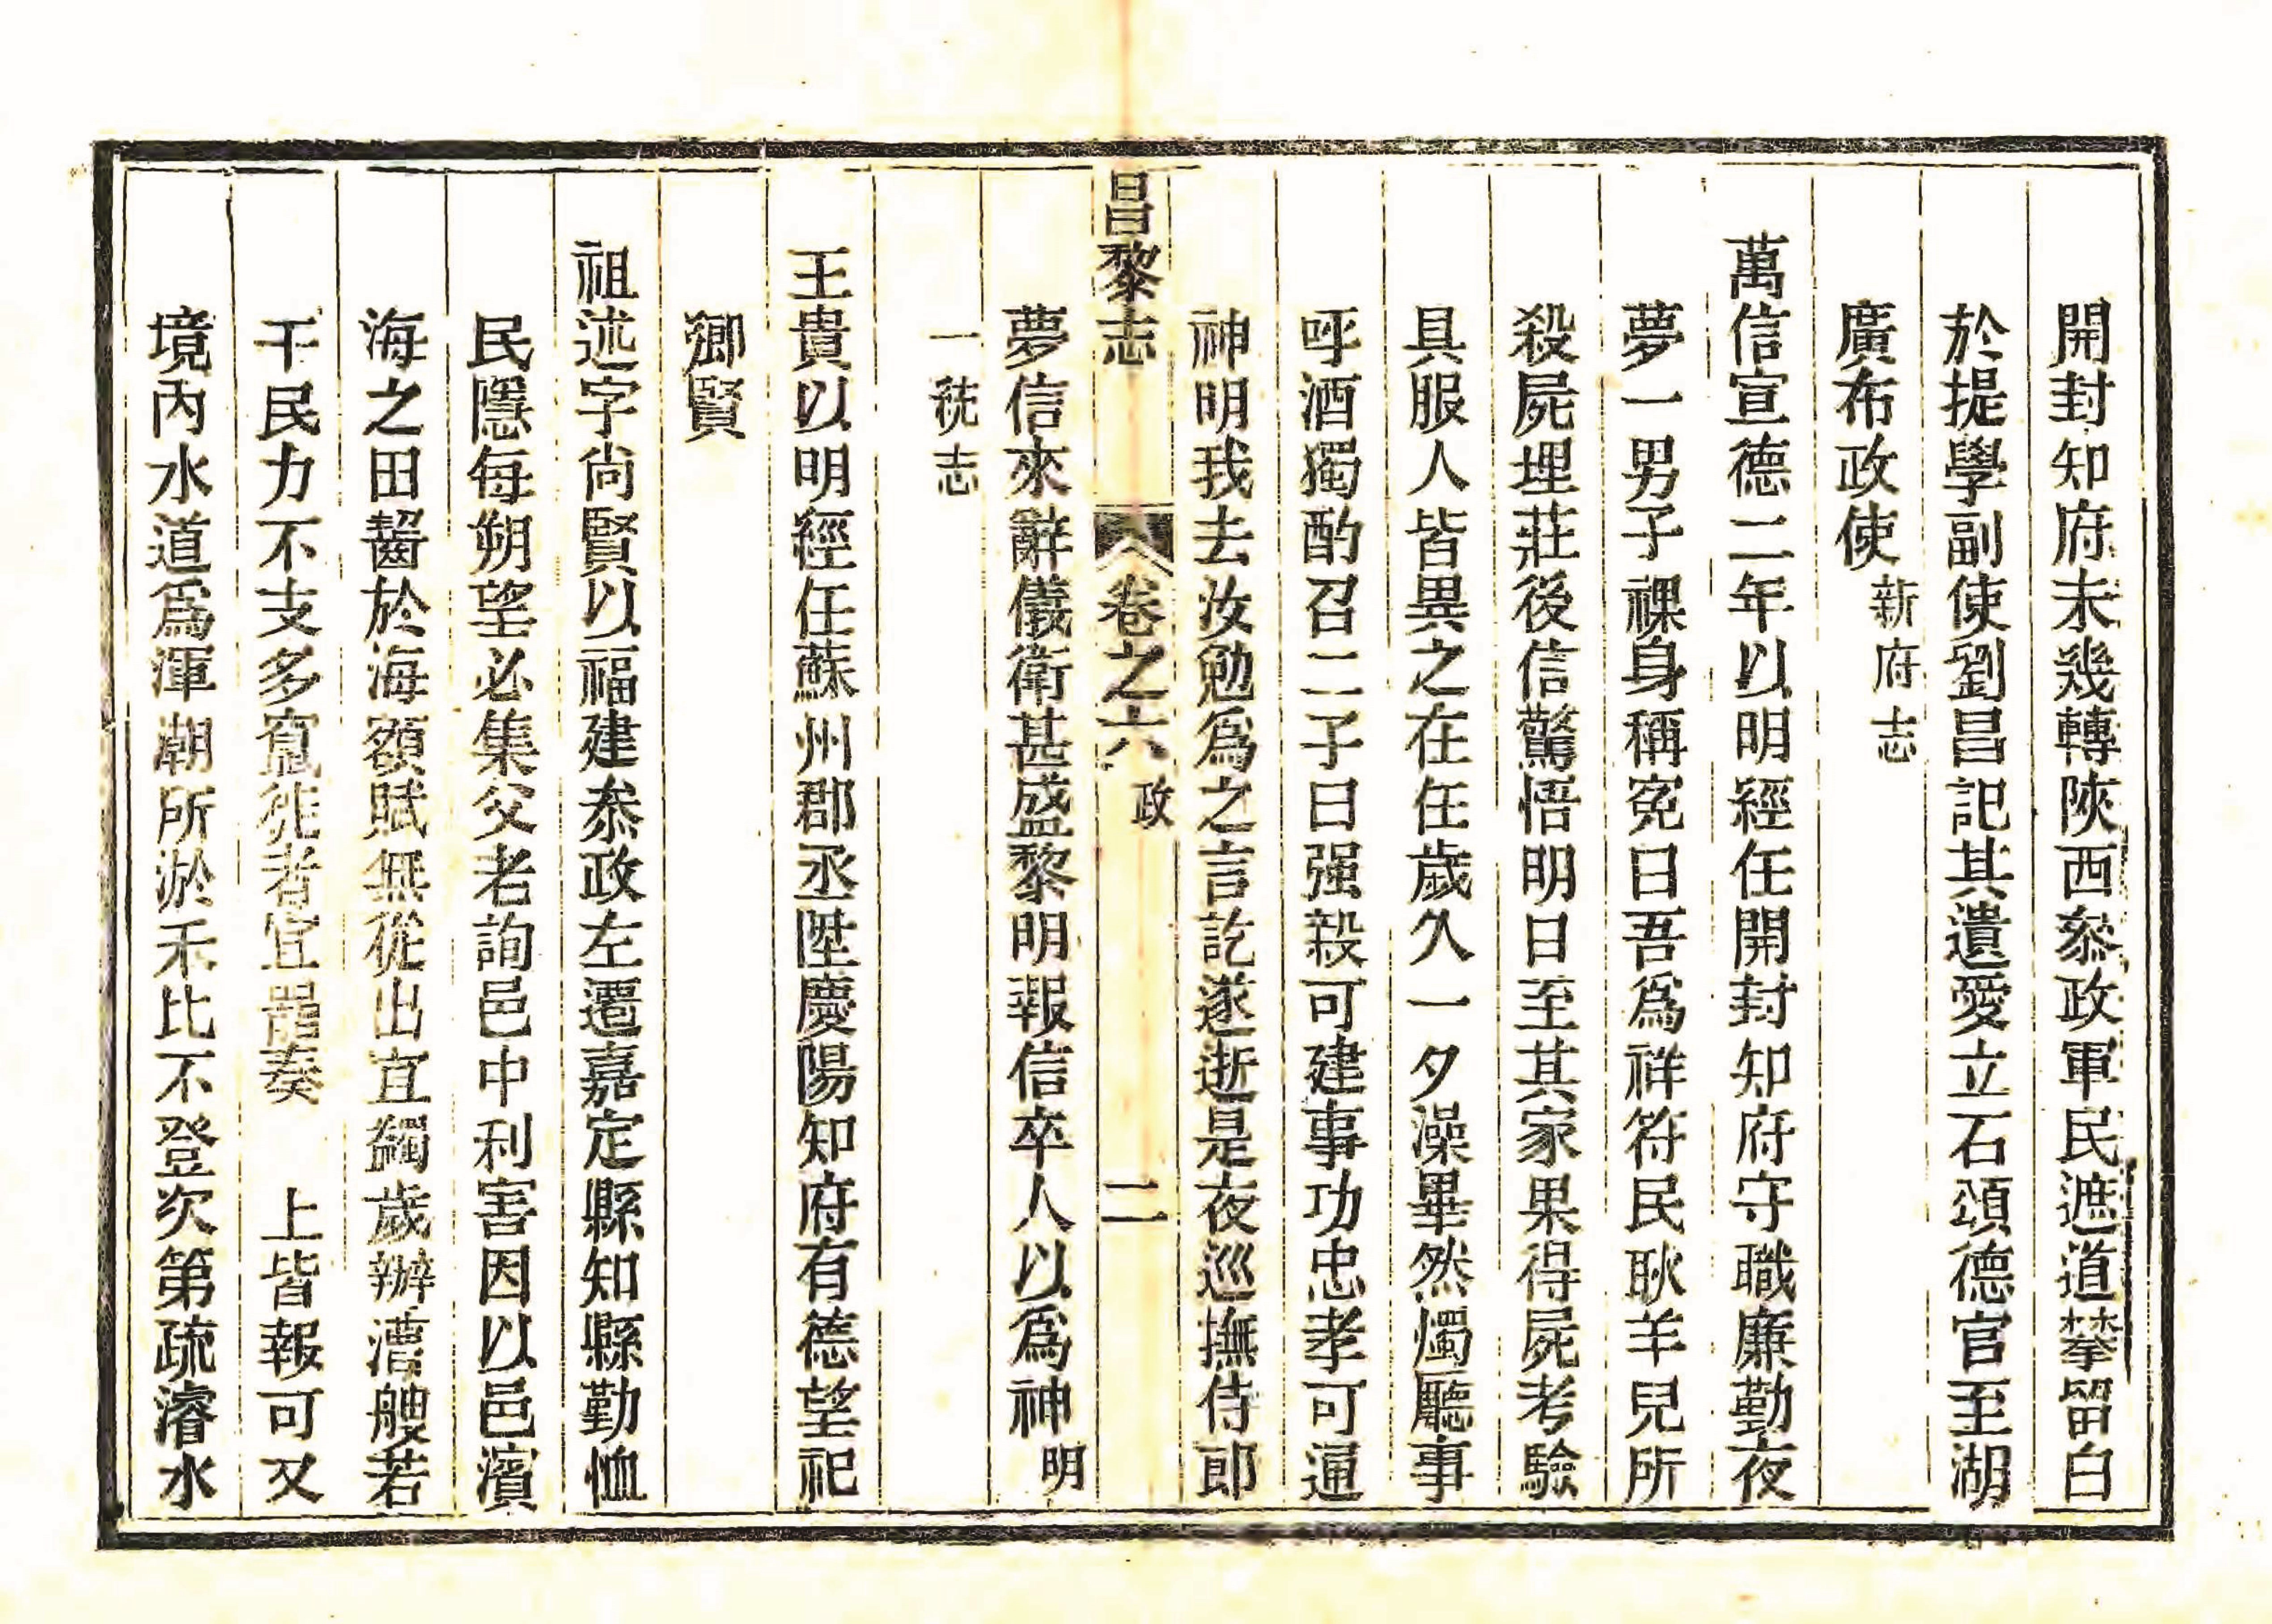 開封知府未幾轉陝西叅政軍民遮道攀留白
於提學副使劉昌記其遺愛立石頌德官至湖
廣布政使新府志
萬信宣德二年以明經任開封知府守職廉勤夜
夢一男子祼身稱寃曰吾爲祥符民耿羊兒所
殺屍埋莊後信驚悟明日至其家果得屍考驗
具服人皆異之在任歲久一夕澡畢然燭廳事
呼酒獨酌召二子曰强殺可建事功忠孝可通
神明我去汝勉爲之言訖遂逝是夜巡撫侍郎
昌黎志 卷之六 政 二
夢信來辭儀衛甚盛黎明報信卒人以爲神明
一統志
王貴以明經任蘇州郡丞陞慶陽知府有德望祀
鄉賢
祖述字尚賢以福建叅政左遷嘉定縣知縣勤恤
民隱每朔望必集父老詢邑中利害因以邑濱
海之田齧於海額賦無從出宜蠲歲辦漕艘若
干民力不支多竄徙者宜罷奏 上皆報可又
境內水道爲渾潮所淤禾比不登次第疏濬水